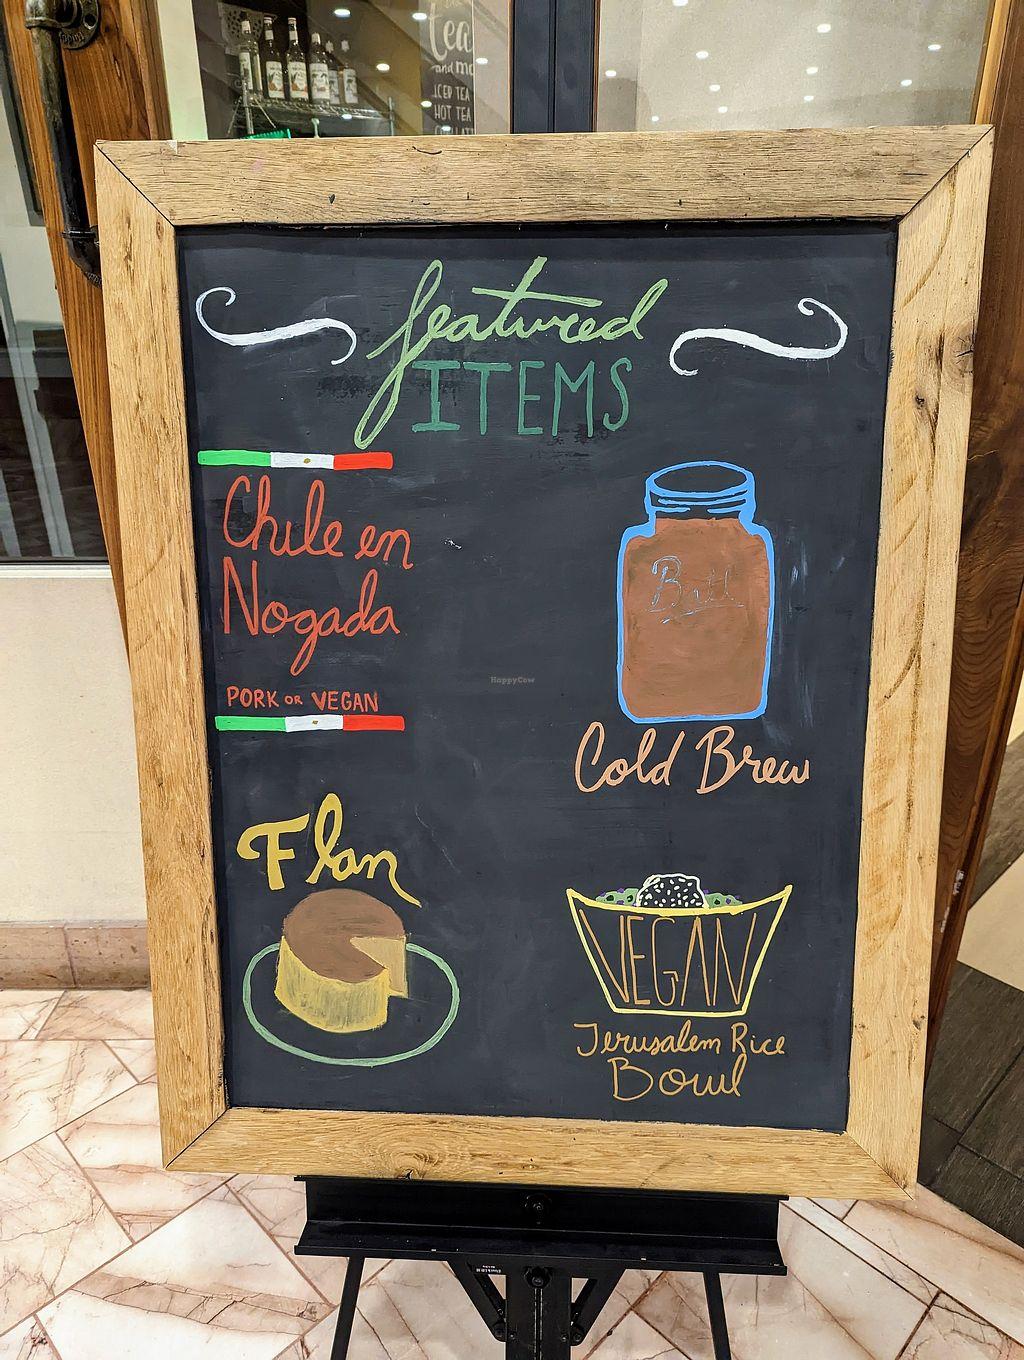 tea
and mo
ICED TEA
HOT TEA
LATT
featured
ITEMS
Chile en
Nogada
PORK OR VEGAN
Ball
Cold Brew
HappyCow
Flan
VEGAN
Jerusalem Rice
Bowl